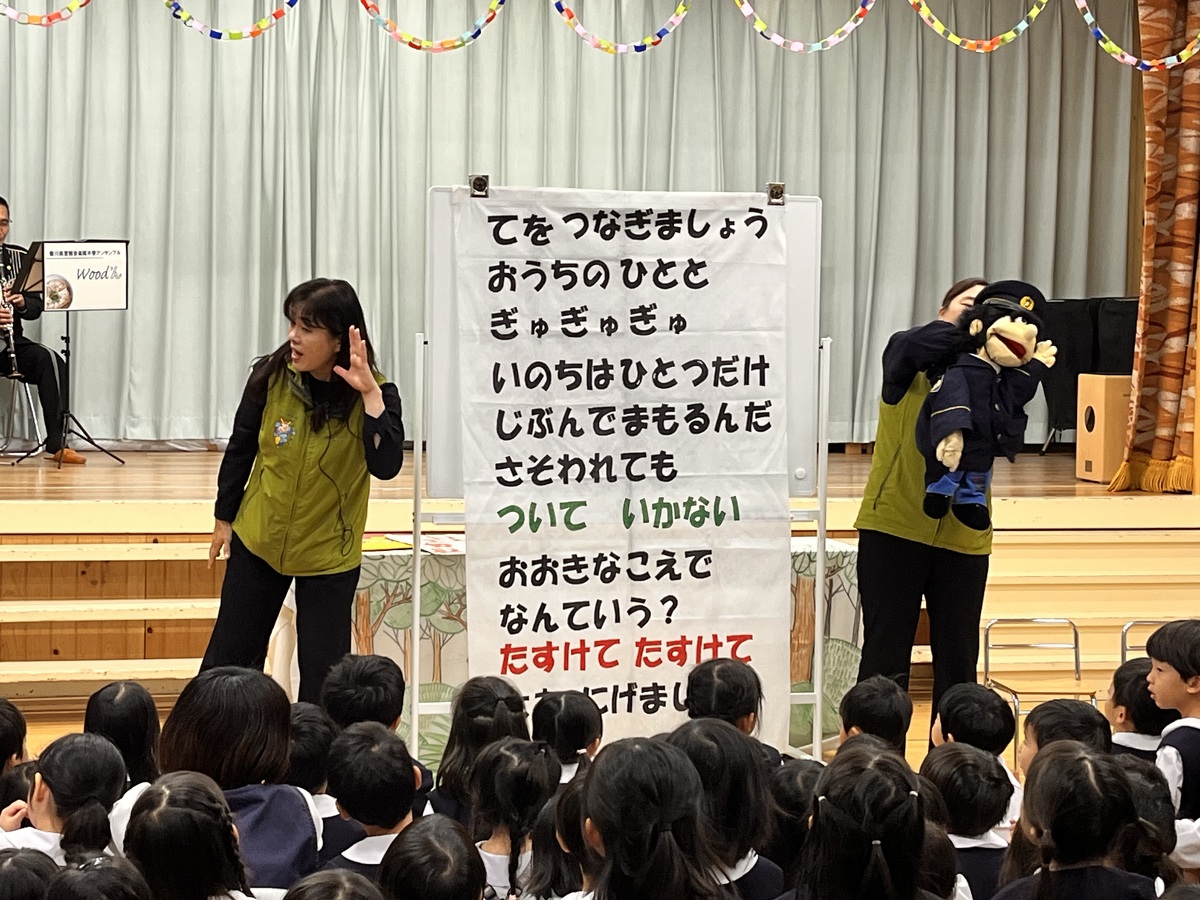 Wood'n
てを つなぎましょう
おうちの ひとと
ぎゅぎゅぎゅ
いのちはひとつだけ
じぶんでまもるんだ
さそわれても
ついて いかない
おおきなこえで
なんていう？
たすけて たすけて
にげまし